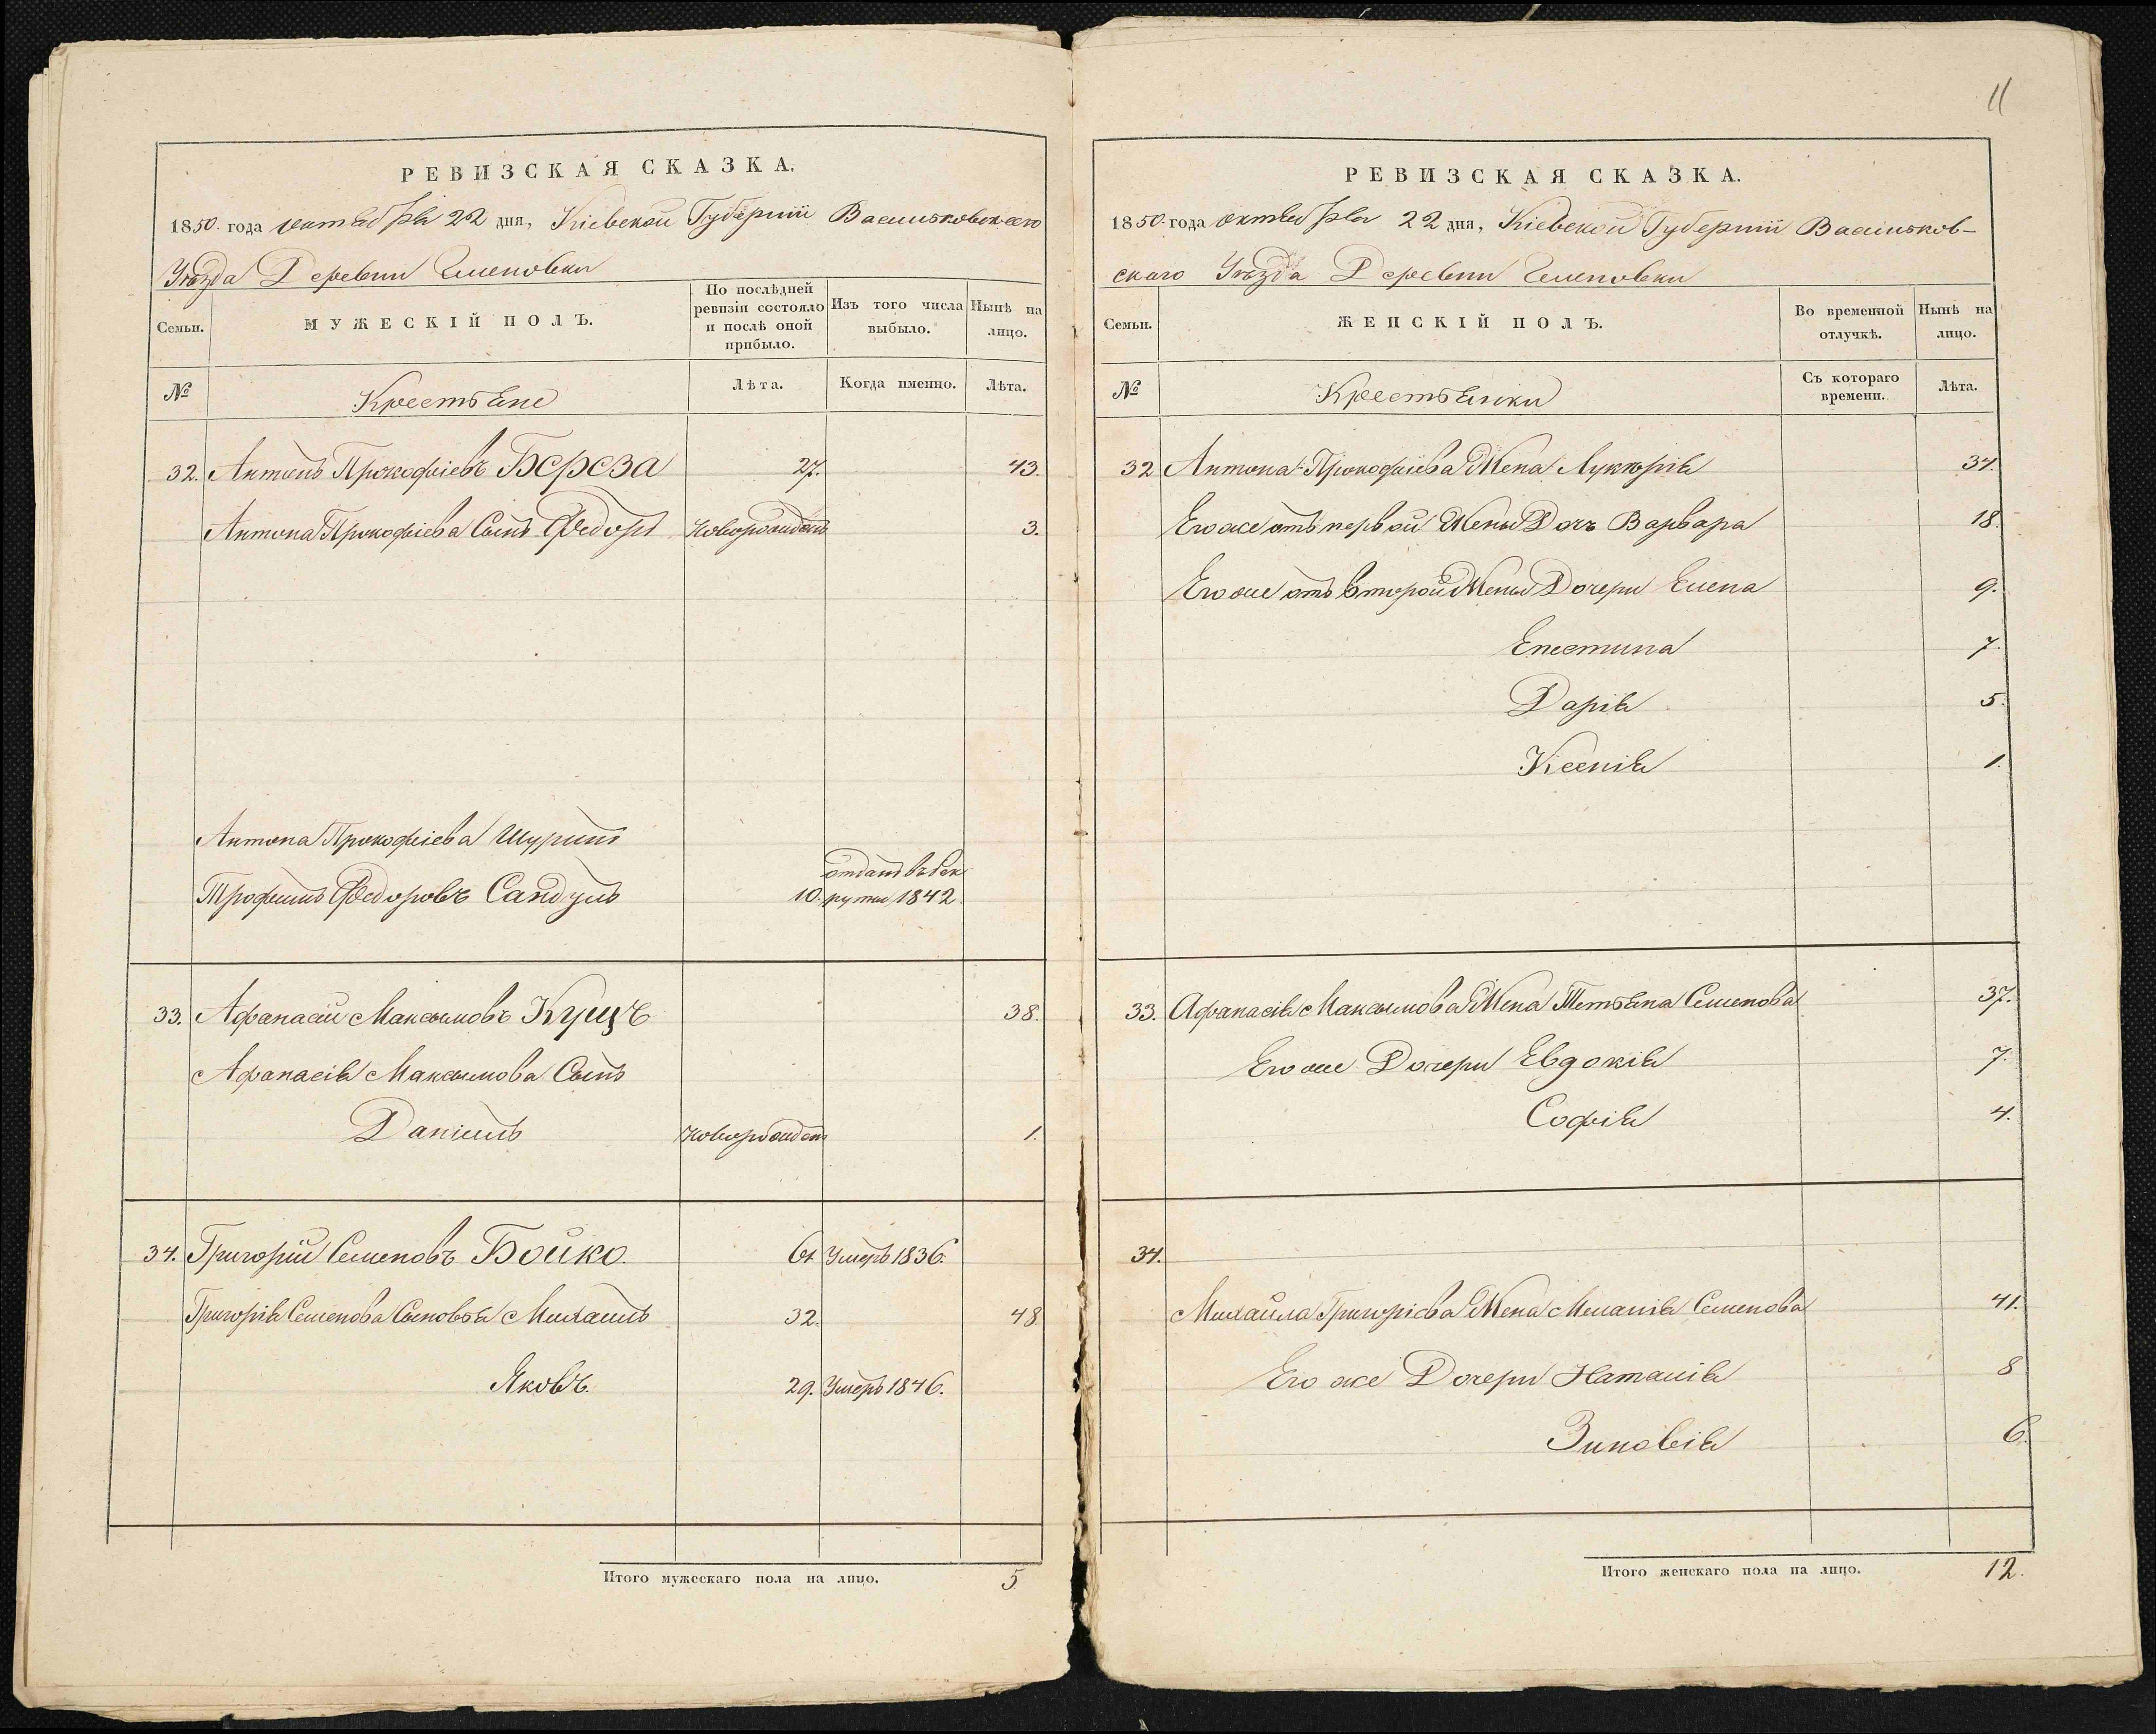 11
РЕВИЗСКАЯ СКАЗКА.
1850 года октября 22 дня, Кіевской Губерніи Васильковскаго
Уѣзда Деревни Еленовки
Семьи.
МУЖЕСКІЙ ПОЛЪ.
По послѣдней ревизіи состояло и послѣ оной прибыло.
Изъ того числа выбыло.
Нынѣ на лицо.
№
Крестьяне
Лѣта.
Когда именно.
Лѣта.
32. Антонъ Прокофіевъ Береза 27. 43.
Антона Прокофіева Сынъ Федоръ новорожденъ 3.
Антона Прокофіева Шуринъ
отданъ въ рек
Трофимъ Федоровъ Сандулъ 10. руты 1842.
33. Афанасій Максимовъ Куцъ 38.
Афанасія Максимова Сынъ
Даніилъ новорожден 1.
34. Григорій Семеновъ Бойко. 61 Умеръ 1836.
Григорія Семенова Сыновья Михаилъ 32. 48
Яковъ 29. Умеръ 1846.
Итого мужескаго пола на лицо. 5
РЕВИЗСКАЯ СКАЗКА.
1850 года октября 22 дня, Кіевской Губерніи Васильков-
скаго Уѣзда Деревни Еленовки
Семьи.
ЖЕНСКІЙ ПОЛЪ.
Во временной отлучкѣ.
Нынѣ на лицо.
№
Крестьянки
Съ котораго времени.
Лѣта.
32 Антона Прокофіева Жена Лукерія 34.
Его же отъ первой Жены Дочь Варвара 18.
Его же отъ второй Жены Дочери Елена 9.
Епистима 7.
Дарія 5.
Ксенія 1.
33. Афанасія Максимова Жена Тетьяна Семенова 37.
Его же Дочери Евдокія 7.
Софія 4.
34.
Михайла Григоріева Жена Меланія Семенова 41.
Его же Дочери Наталія 8
Зиновія 6.
Итого женскаго пола на лицо. 12.